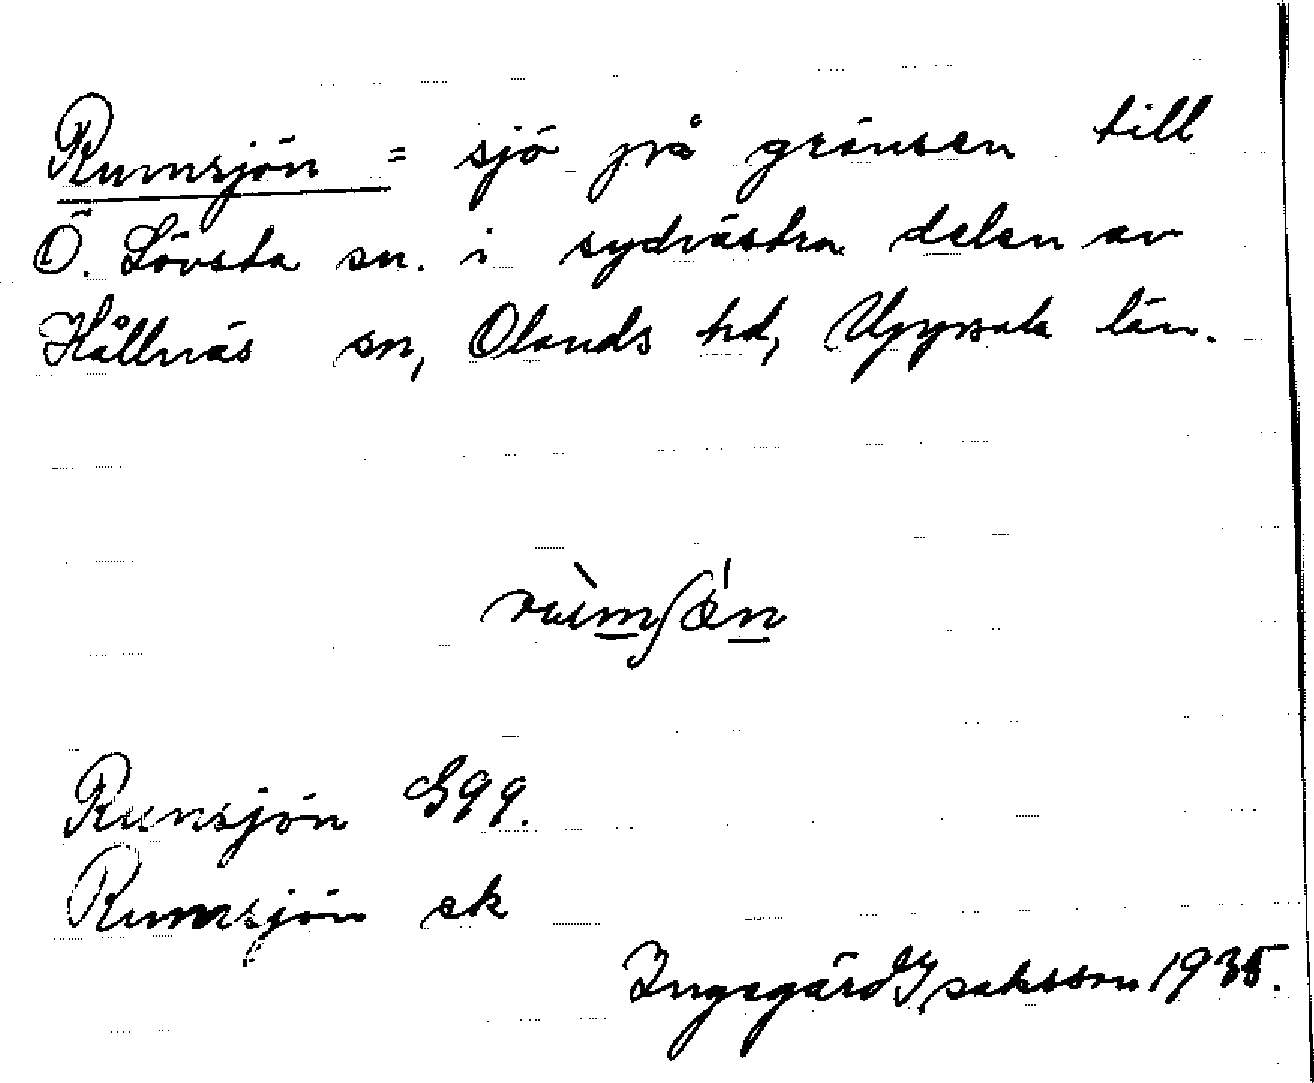 Rumsjön = sjö på gränsen till
Ö. Lövsta sn. i sydvästra delen av
Hållnäs sn, Olands hd, Uppsala län.
Runsjön
Rumsjön ek
Ingegärd Isaksson 1935.